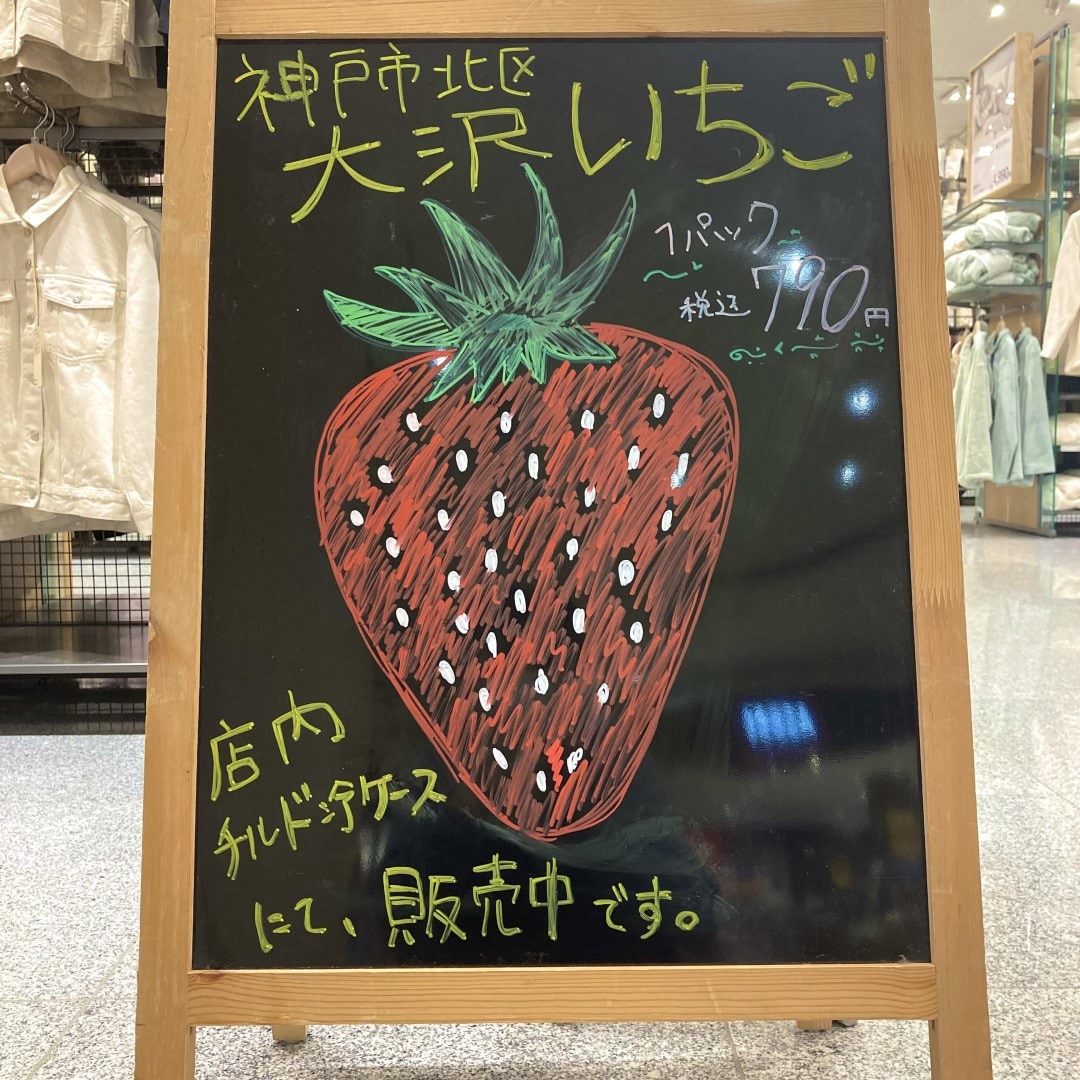 神戸市北区
大沢いちご
1パック
税込790円
店内
チルド冷ケース
にて、販売中です。